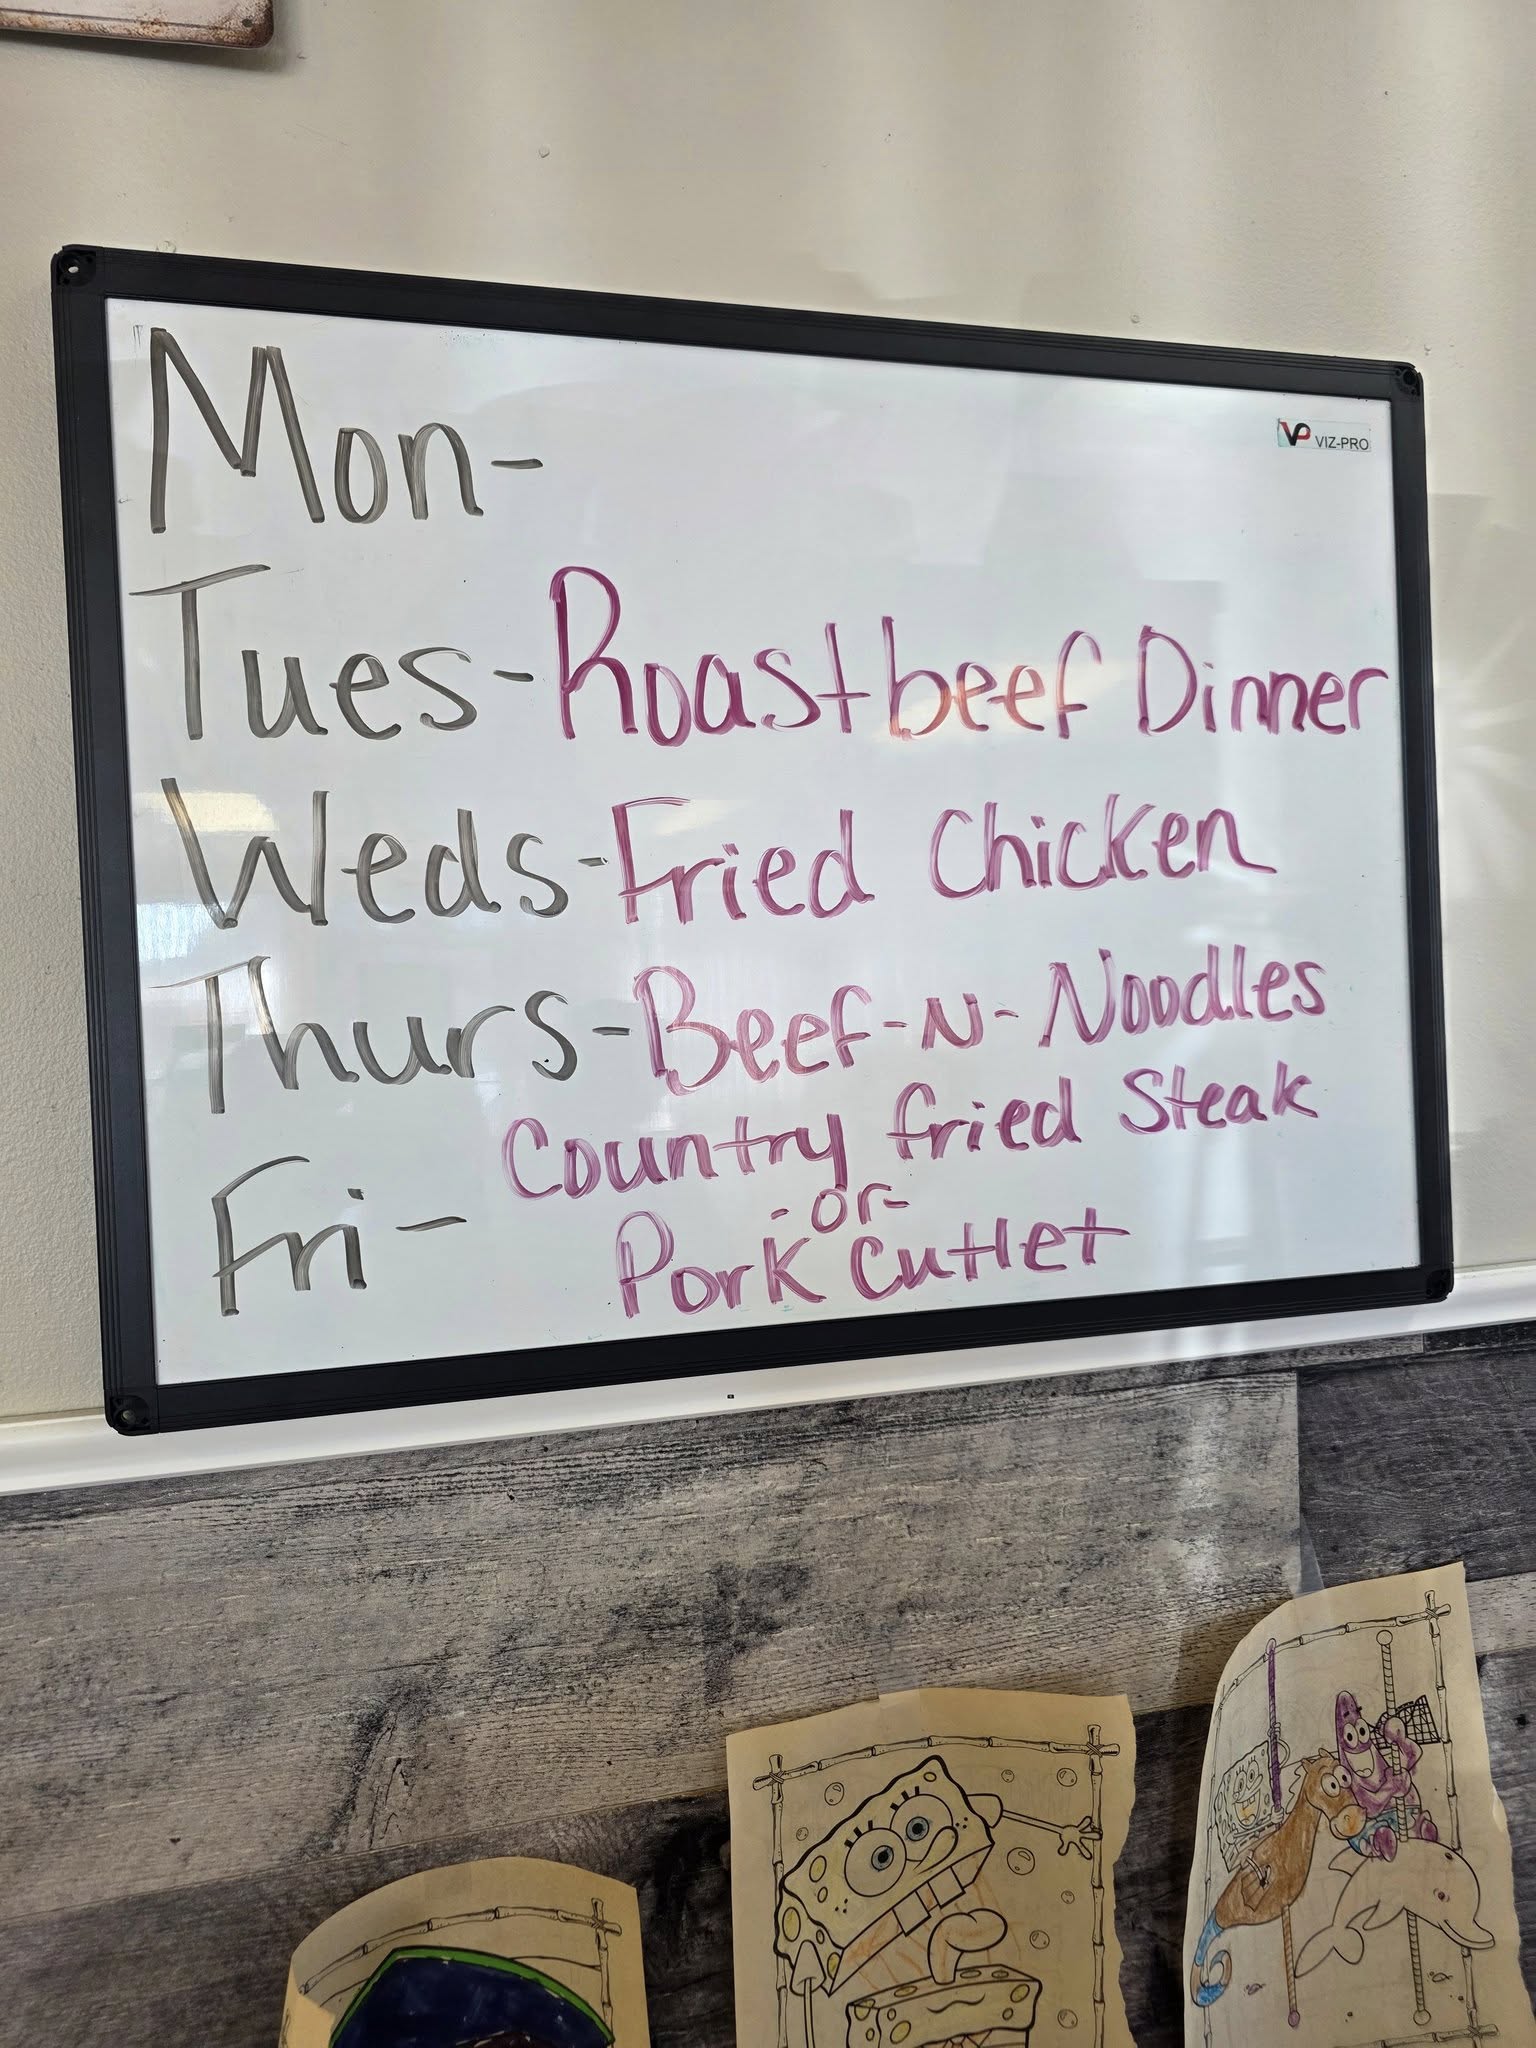 VP VIZ-PRO
Mon-
Tues- Roast beef Dinner
Weds- Fried Chicken
Thurs- Beef-N-Noodles
Fri- Country fried Steak
-or-
Pork Cutlet